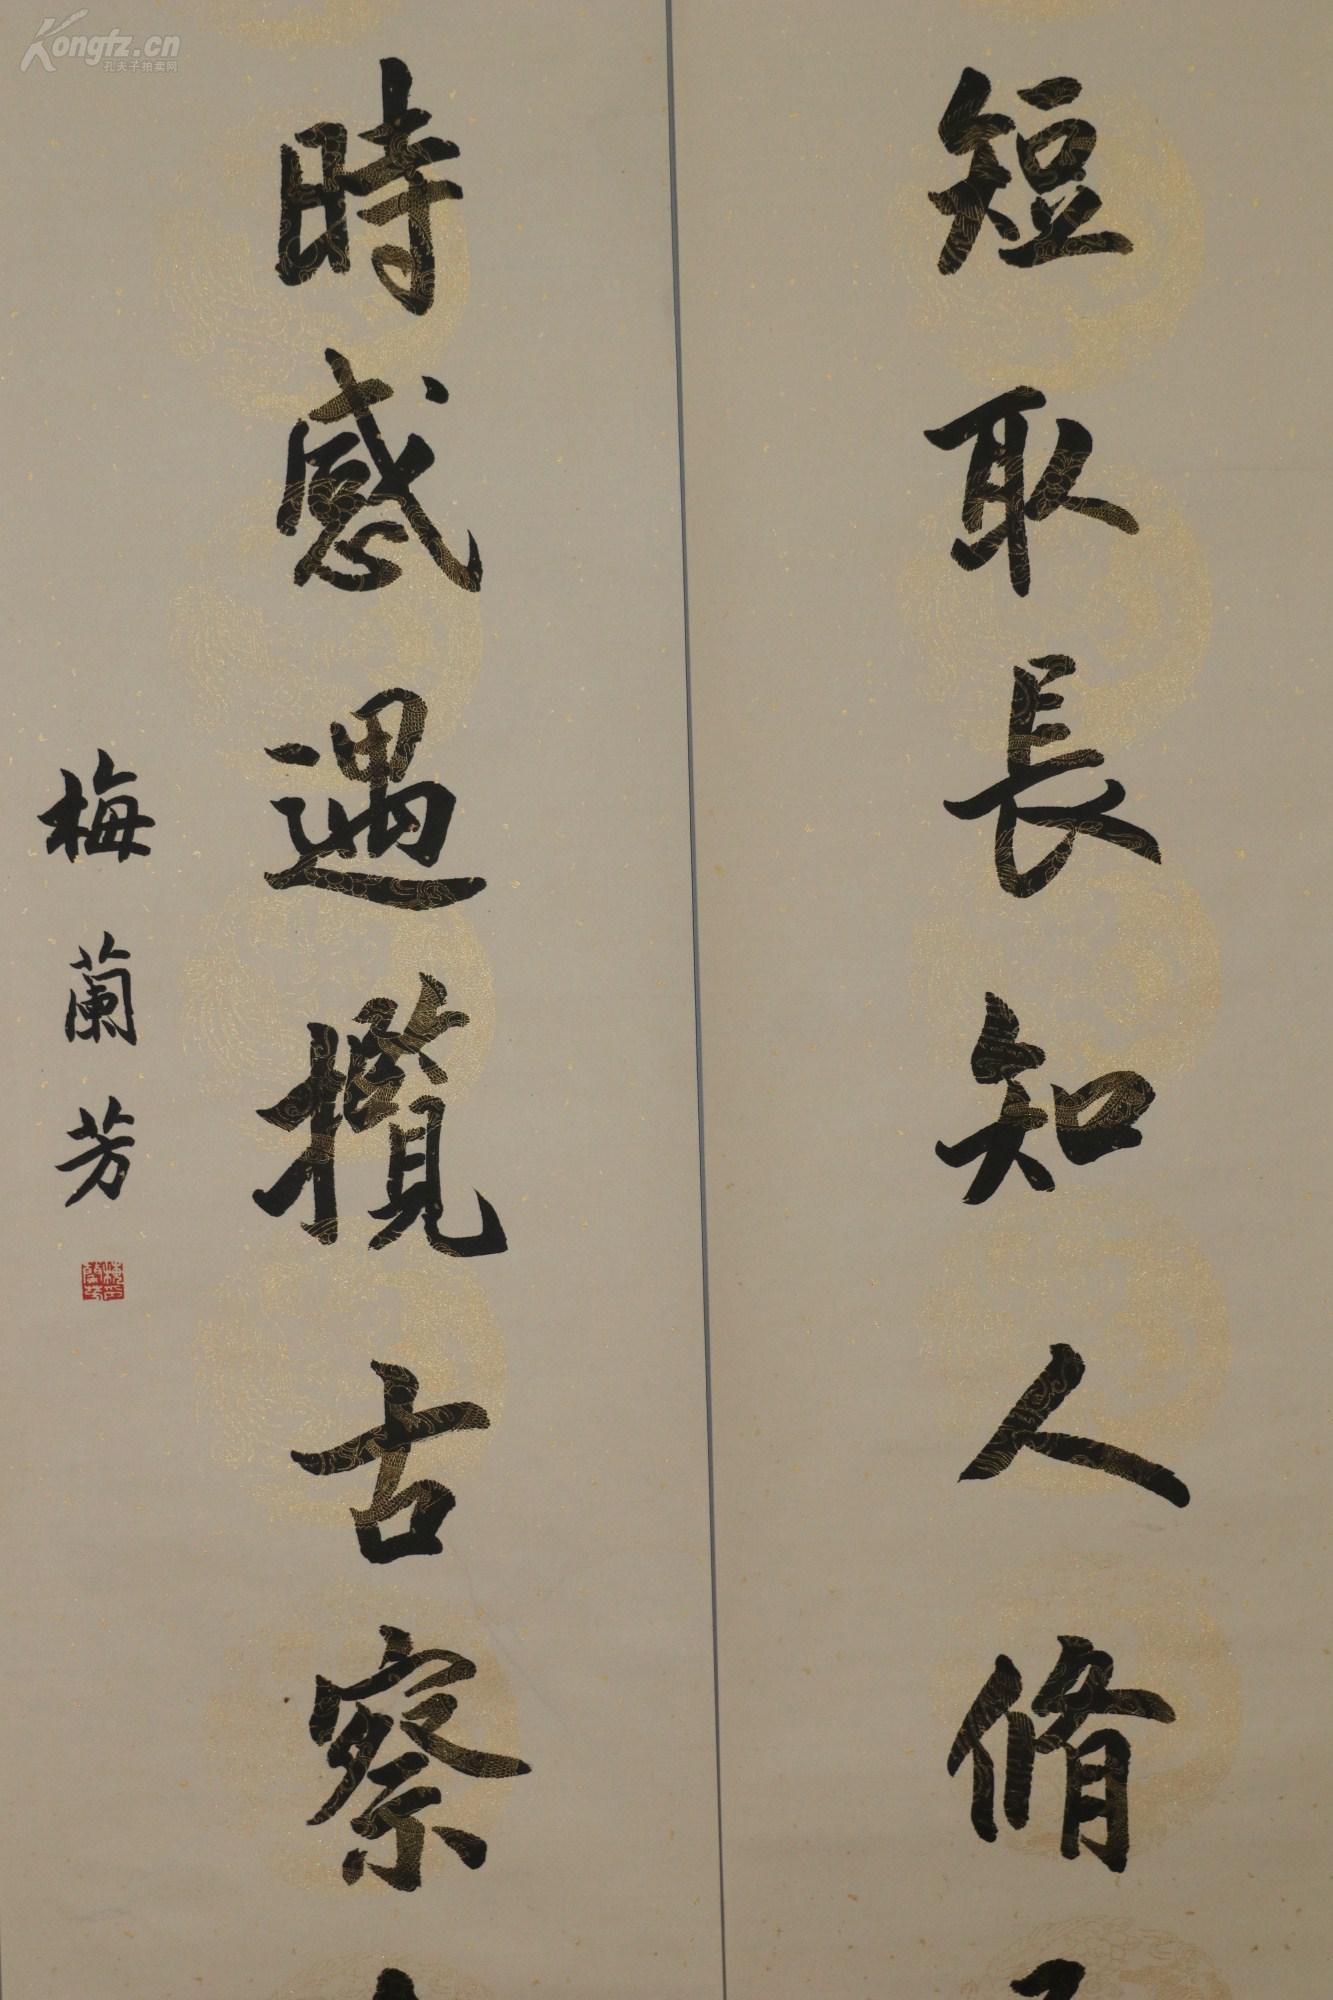 短取長知人脩
時感遇攬古察
梅蘭芳
Kongfz.cn
孔夫子拍卖网